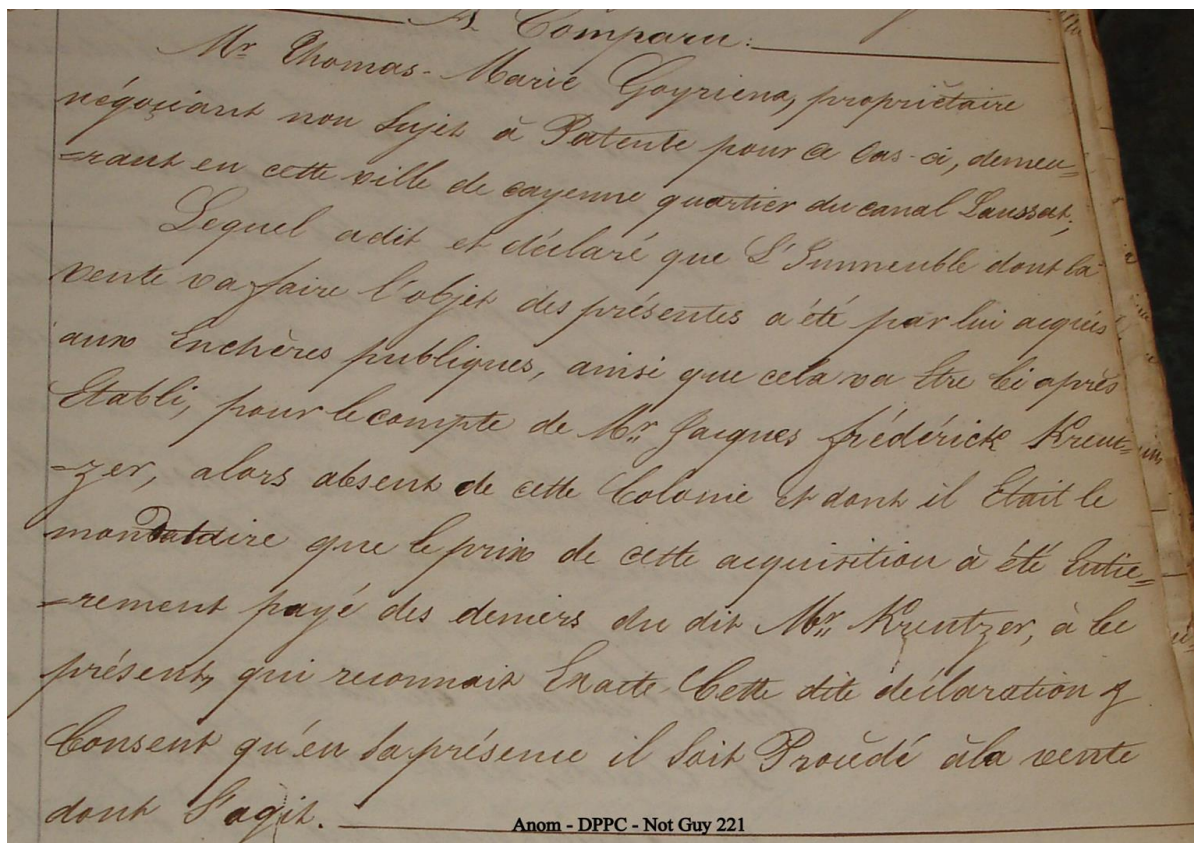 A Comparu:
Mr Thomas-Marie Goyriena, propriétaire
négociant non Sujet à Patente pour ce Cas-ci, demeu=
=rant en cette ville de cayenne quartier du canal Laussat;
Lequel a dit et déclaré que L'Immeuble dont la
vente va faire l'objet des présentes a été par lui acquis
aux Enchères publiques, ainsi que cela va Etre Ci après
Etabli, pour le compte de Mr. Jacques frédérick Kreut=
=zer, alors absent de cette Colonie et dont il Etait le
mandataire que le prix de cette acquisition à été Entiè=
=rement payé des deniers du dit Mr. Kreutzer, à ce
présent, qui reconnait Exacte Cette dite déclaration &
Consent qu'en sa présence il Soit Procédé à la vente
dont S'agit.
Anom - DPPC - Not Guy 221